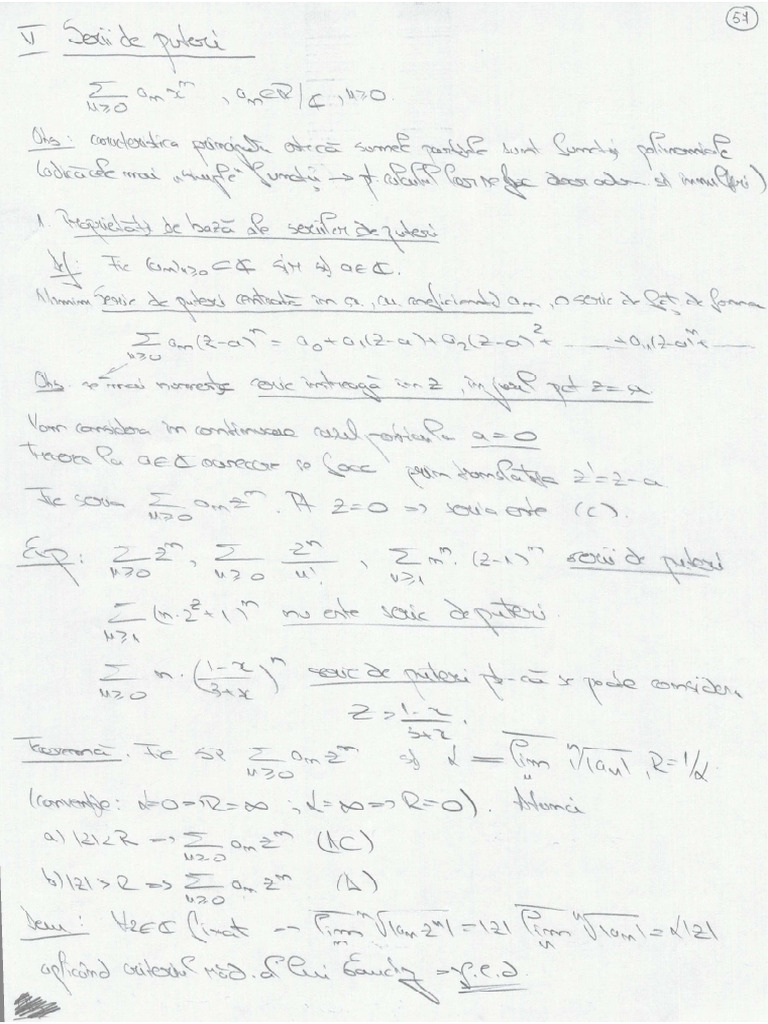 57
V Serii de puteri
∑_{n≥0} a_n x^n , a_n ∈ R/ℂ, n≥0.
Obs: caracteristica principală e că sumele parțiale sunt funcții polinomiale
(adică cele mai "simple" funcții → pt calculul lor se fac doar adun. și înmulțiri)
1. Proprietăți de bază ale seriilor de puteri
Def: Fie (a_n)_{n≥0} ⊂ ℂ șir și a∈ℂ.
Numim serie de puteri centrată în a, cu coeficienții a_n, o serie de fcț. de forma
∑_{n≥0} a_n(z-a)^n = a_0+a_1(z-a)+a_2(z-a)^2+.....+a_n(z-a)^n+.....
Obs. se mai numește serie întreagă în z, în jurul pct z=a
Vom considera în continuare cazul particular a=0
Trecerea la a∈ℂ oarecare se face prin translația z'=z-a
Fie seria ∑_{n≥0} a_n z^n. Pt z=0 => seria este (C).
Exp: ∑_{n≥0} z^n, ∑_{n≥0} z^n/n!, ∑_{n≥1} n^n·(z-1)^n serii de puteri
∑_{n≥1} (n·2^z+1)^n nu este serie de puteri.
∑_{n≥0} n·((1-x)/(3+x))^n serie de puteri pt-că se poate considera
z=(1-x)/(3+x).
Teoremă. Fie ∑_{n≥0} a_n z^n și α = \overline{lim}_n ⁿ√|a_n|, R=1/α
(convenție: α=0=>R=∞ ; α=∞=>R=0). Atunci
a) |z|<R => ∑_{n≥0} a_n z^n (AC)
b) |z|>R => ∑_{n≥0} a_n z^n (D)
Dem: ∀z∈ℂ fixat → \overline{lim}_n ⁿ√|a_n z^n| = |z| \overline{lim}_n ⁿ√|a_n| = α|z|
aplicând criteriul răd. al lui Cauchy => q.e.d